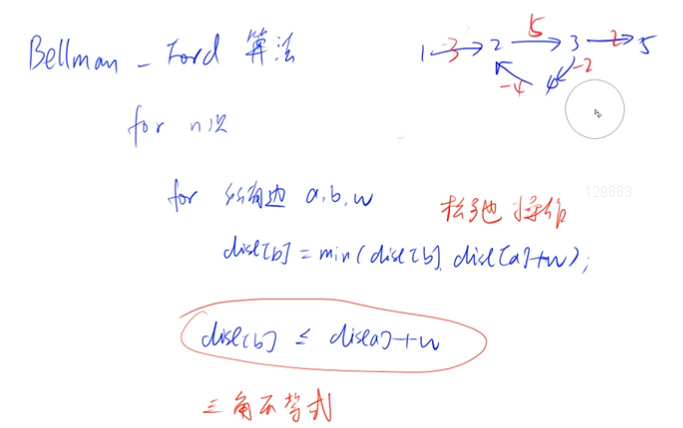 Bellman - Ford 算法
1 -3 2 5 3 2 5
-4 4 -2
for n次
for 所有边 a,b,w
松弛操作
dist[b] = min(dist[b], dist[a]+w);
dist[b] ≤ dist[a]+w
三角不等式
129663